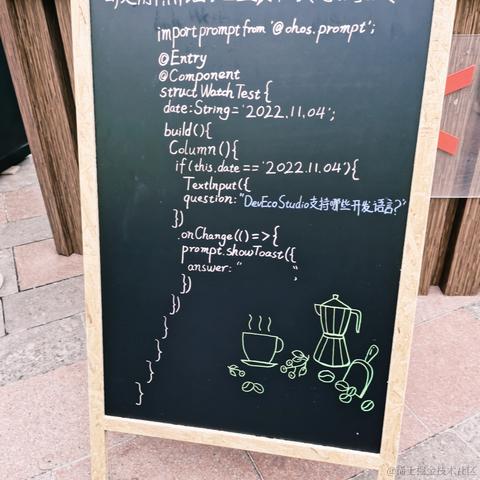 import prompt from '@ohos.prompt';
@Entry
@Component
struct WatchTest {
date:String='2022.11.04';
build(){
Column(){
if(this.date=='2022.11.04'){
TextInput({
question:"DevEcoStudio支持哪些开发语言?"
})
.onChange(()=>{
prompt.showToast({
answer:" ",
})
})
}
}
}
}
@稀土掘金技术社区